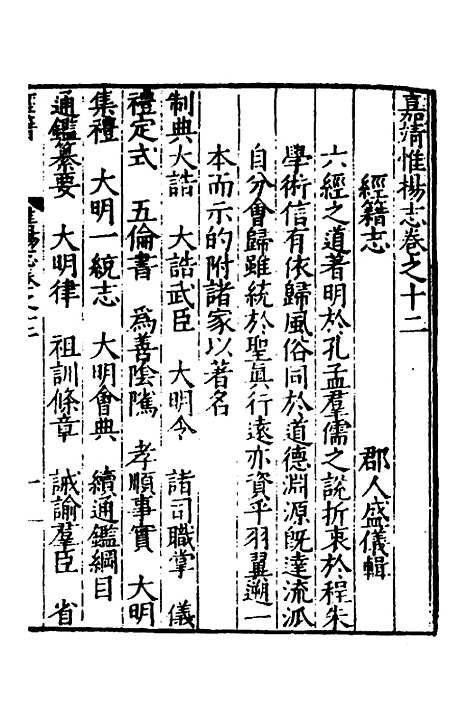 嘉靖惟揚志卷之十二
經籍志　郡人盛儀輯
六經之道著明於孔孟羣儒之說折衷於程朱
學術信有依歸風俗同於道德淵源既達流派
自分會歸雖統於聖眞行遠亦資乎羽翼遡一
本而示的附諸家以著名
制典大誥　大誥武臣　大明令　諸司職掌　儀
禮定式　五倫書　爲善陰隲　孝順事實　大明
集禮　大明一統志　大明會典　續通鑑綱目
通鑑纂要　大明律　祖訓條章　誡諭羣臣　省